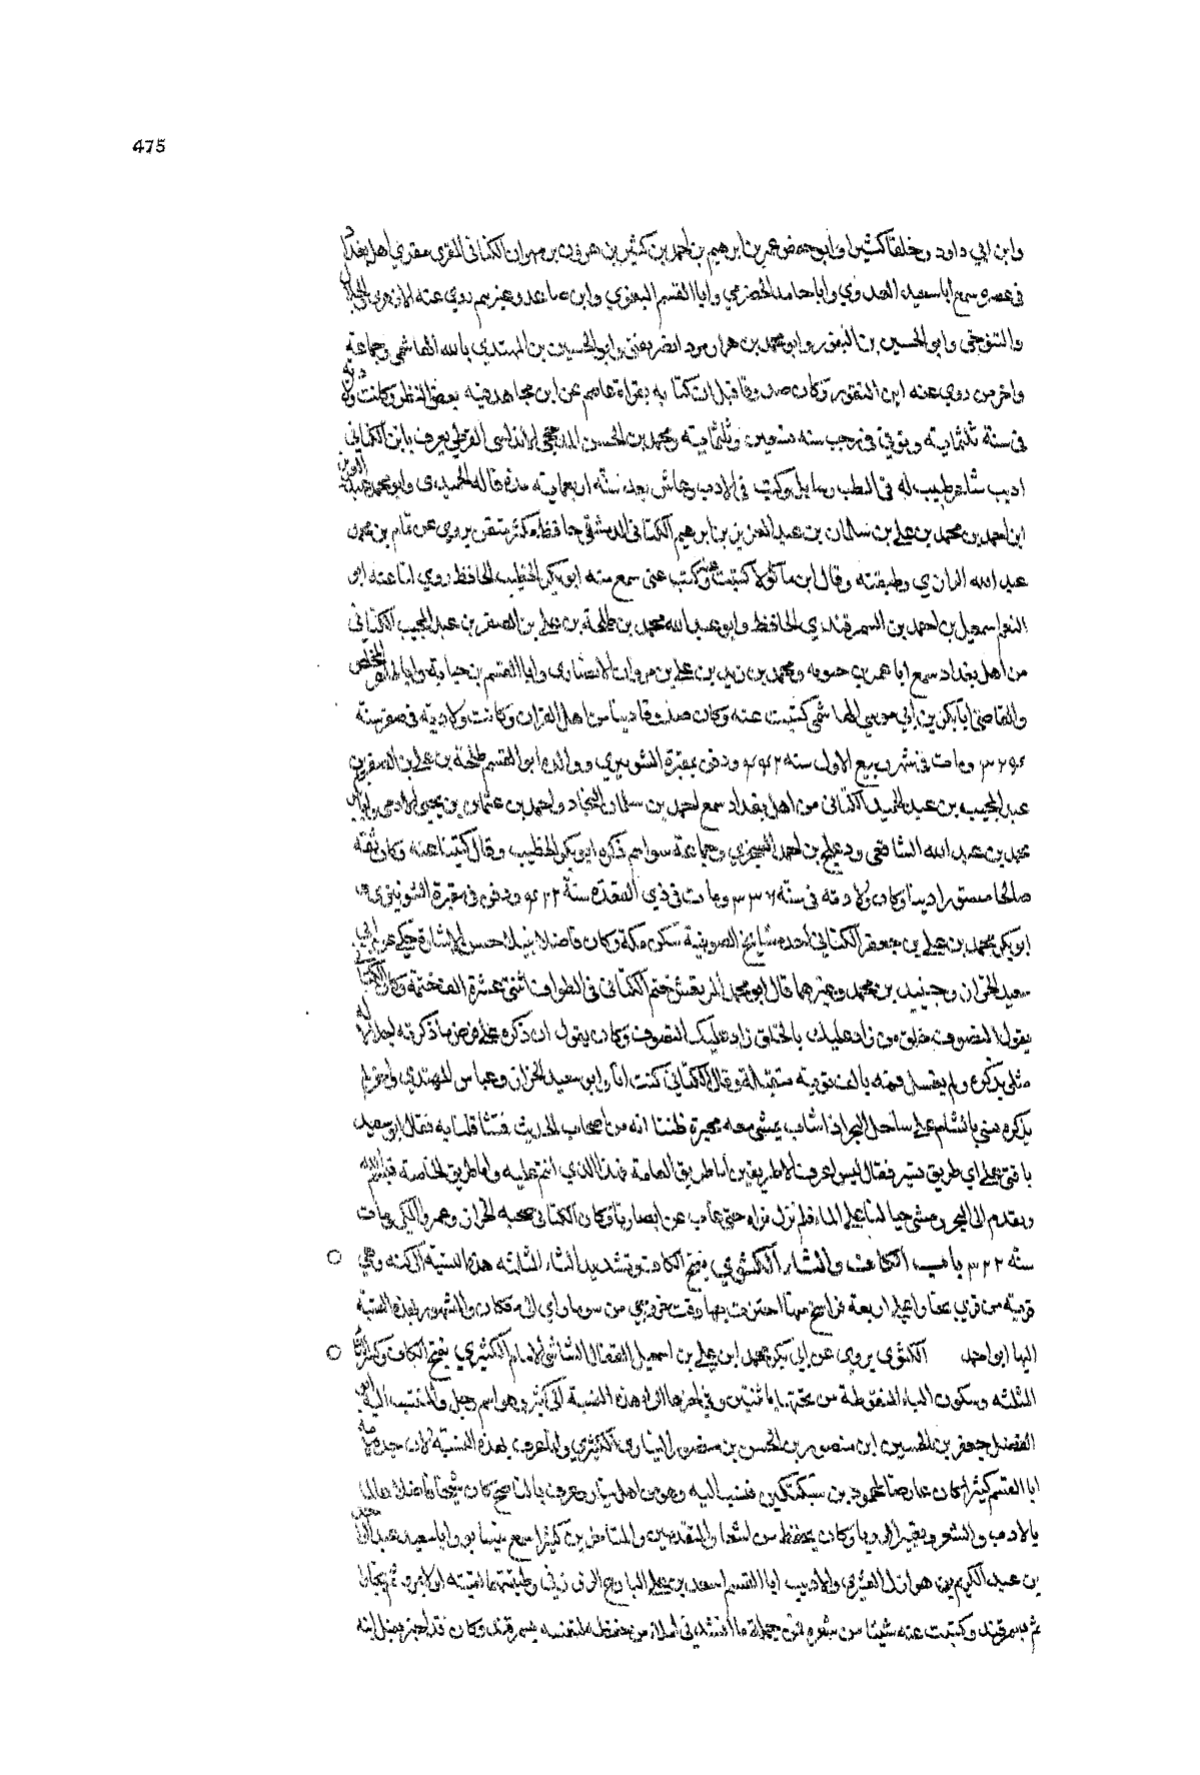 475
وابن ابي داود وخلقا كثيرا وابو حفص عمر بن ابرهيم بن احمد بن كثير بن هرون بن مهران الكتاني المقري مقري اهل بغداد
في عصره سمع ابا سعيد العدوي وابا حامد الحضرمي وابا القسم البغوي وابن صاعد وغيرهم روي عنه الازهري والخلال
والتنوخي وابو الحسين بن النقور وابو محمد بن هزارمرد الصريفيني وابو الحسين بن المهتدي بالله الهاشمي وجماعة
واخر من روي عنه ابن النقور وكان صدوقا قيل ان كتابه بقراة عاصم عن ابن مجاهد فيه بعض النظر وكانت ولادته
في سنة ثلثماية وتوفي في رجب سنه تسعين وثلثماية ومحمد بن الحسن المذحجي الاندلسي القرطبي يعرف بابن الكتاني
اديب شاعر طبيب له في الطب رسايل وكتب في الادب وعاش بعد سنة اربعماية مدة قاله الحميدي وابو محمد عبد العزيز
ابن احمد بن محمد بن علي بن سلمان بن عبد العزيز بن ابرهيم الكتاني الدمشقي حافظ مكثر متقن يروي عن تمام بن محمد بن
عبد الله الرازي وطبقته وقال ابن ماكولا كتبت عنه وكتب عني سمع منه ابو بكر الخطيب الحافظ روي لنا عنه ابو
القسم اسمعيل بن احمد بن السمرقندي الحافظ وابو عبد الله محمد بن طلحة بن علي بن الصقر بن عبد المجيب الكتاني
من اهل بغداد سمع ابا عمر بن حيويه ومحمد بن زيد بن علي بن مروان الانصاري وابا القسم بن حبابة وابا طاهر المخلص
والقاضي ابا بكر بن ابي موسي الهاشمي كتبت عنه وكان صدوقا دينا من اهل القران وكانت ولادته في صفر سنة
ومات في شهر ربيع الاول سنه ٤٤٢ ودفن بمقبرة الشونيزي ووالده ابو القسم طلحة بن علي بن الصقر بن
عبد المجيب بن عبد الحميد الكتاني من اهل بغداد سمع احمد بن سلمان النجاد واحمد بن عثمان بن يحيي الادمي وابا بكر
محمد بن عبد الله الشافعي ودعلج بن احمد السجزي وجماعة سواهم ذكره ابو بكر الخطيب وقال كتبنا عنه وكان ثقة
صالحا مستورا دينا وكان ولادته في سنة ٣٣٦ ومات في ذي القعدة سنة ٤٢٢ ودفن في مقبرة الشونيزي
ابو بكر محمد بن علي بن جعفر الكتاني احد مشايخ الصوفية سكن مكة وكان فاضلا نبيلا حسن الاشارة حكي عن ابي
سعيد الخراز وجنيد بن محمد وغيرهما قال ابو محمد المرتعش ختم الكتاني في الطواف اثنتي عشرة الف ختمة وكان الكتاني
يقول التصوف خلق من زاد عليك بالخلق زاد عليك بالتصوف وكان يقول ان ذكره علي فرض ما ذكرته اجلالا له
مثلي يذكره ولم يغسل فمه بالف توبة متقبلة وقال الكتاني كنت انا وابو سعيد الخراز وعباس المهتدي واخر لم
يذكره مني بالشام علي ساحل البحر اذا شاب يمشي معه محبرة ظننا انه من اصحاب الحديث فتثاقلنا به فقال ابو سعيد
يا فتي علي اي طريق تسير فقال ليس اعرف الا طريقين اما طريق العامة فهذا الذي انتم عليه واما طريق الخاصة فبسم الله
وتقدم الي البحر ومشي حيالنا علي الماء فلم نزل نراه حتي غاب عن ابصارنا وكان الكتاني صحبه الخراز وعمر والمكي ومات
سنه ٣٢٢ باب الكاف والثاء الكثوي بفتح الكاف وتشديد الثاء المثلثه هذه النسبة الي كثه وهي
قرية من قري بخارا علي اربعة فراسخ منها اجتزت بها وقت خروجي من سوما واي الي فكان والمشهور بهذه النسبة
اليها ابو احمد الكثوي يروي عن ابي بكر محمد ابن علي بن اسمعيل القفال الشاشي الامام الكثيري بفتح الكاف وكسر الثا
المثلثه وسكون الياء المنقوطة من تحتها باثنتين وفي اخرها الراء هذه النسبة الي كثير وهو اسم رجل والمنتسب اليه ابو
الفضل جعفر بن الحسين ابن منصور بن الحسن بن منصور البياري الكثيري وانما عرف بهذه النسبة لان جده لامه
ابا القسم كثيرا كان عارضا لمحمود بن سبكتكين فنسب اليه وهو من اهل بيار كان شيخا فاضلا عالما
بالادب والشعر وكان يحفظ من اشعار المتقدمين والمتاخرين كثيرا سمع بنيسابور ابا سعيد عبد الواحد
بن عبد الكريم بن هوازن القشيري والاديب ابا القسم اسعد بن علي البارع الزوزني وطبقتهما لقيته اولا بمرو ثم ببخارا
ثم بسمرقند وكتبت عنه شيئا من شعره فمن جملة ما انشدني املاء من حفظه لنفسه بسمرقند وكان قد اخبر بفضل ابنه